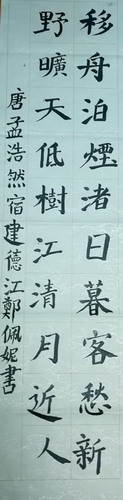 移舟泊煙渚日暮客愁新
野曠天低樹江清月近人
唐孟浩然宿建德江鄭佩妮書